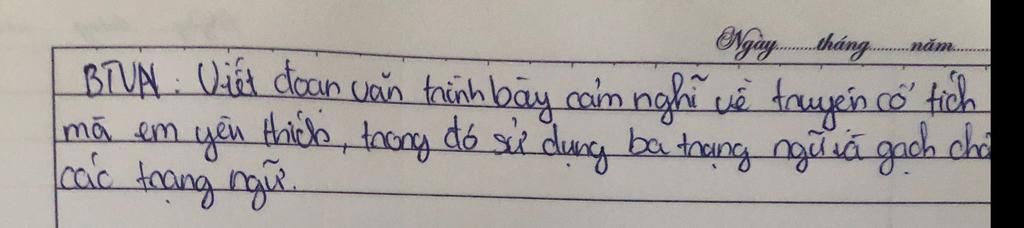 Ngày.........tháng.........năm.........
BTVN: Viết đoạn văn trình bày cảm nghĩ về truyện cổ tích
mà em yêu thích, trong đó sử dụng ba trạng ngữ và gạch châ
các trạng ngữ.